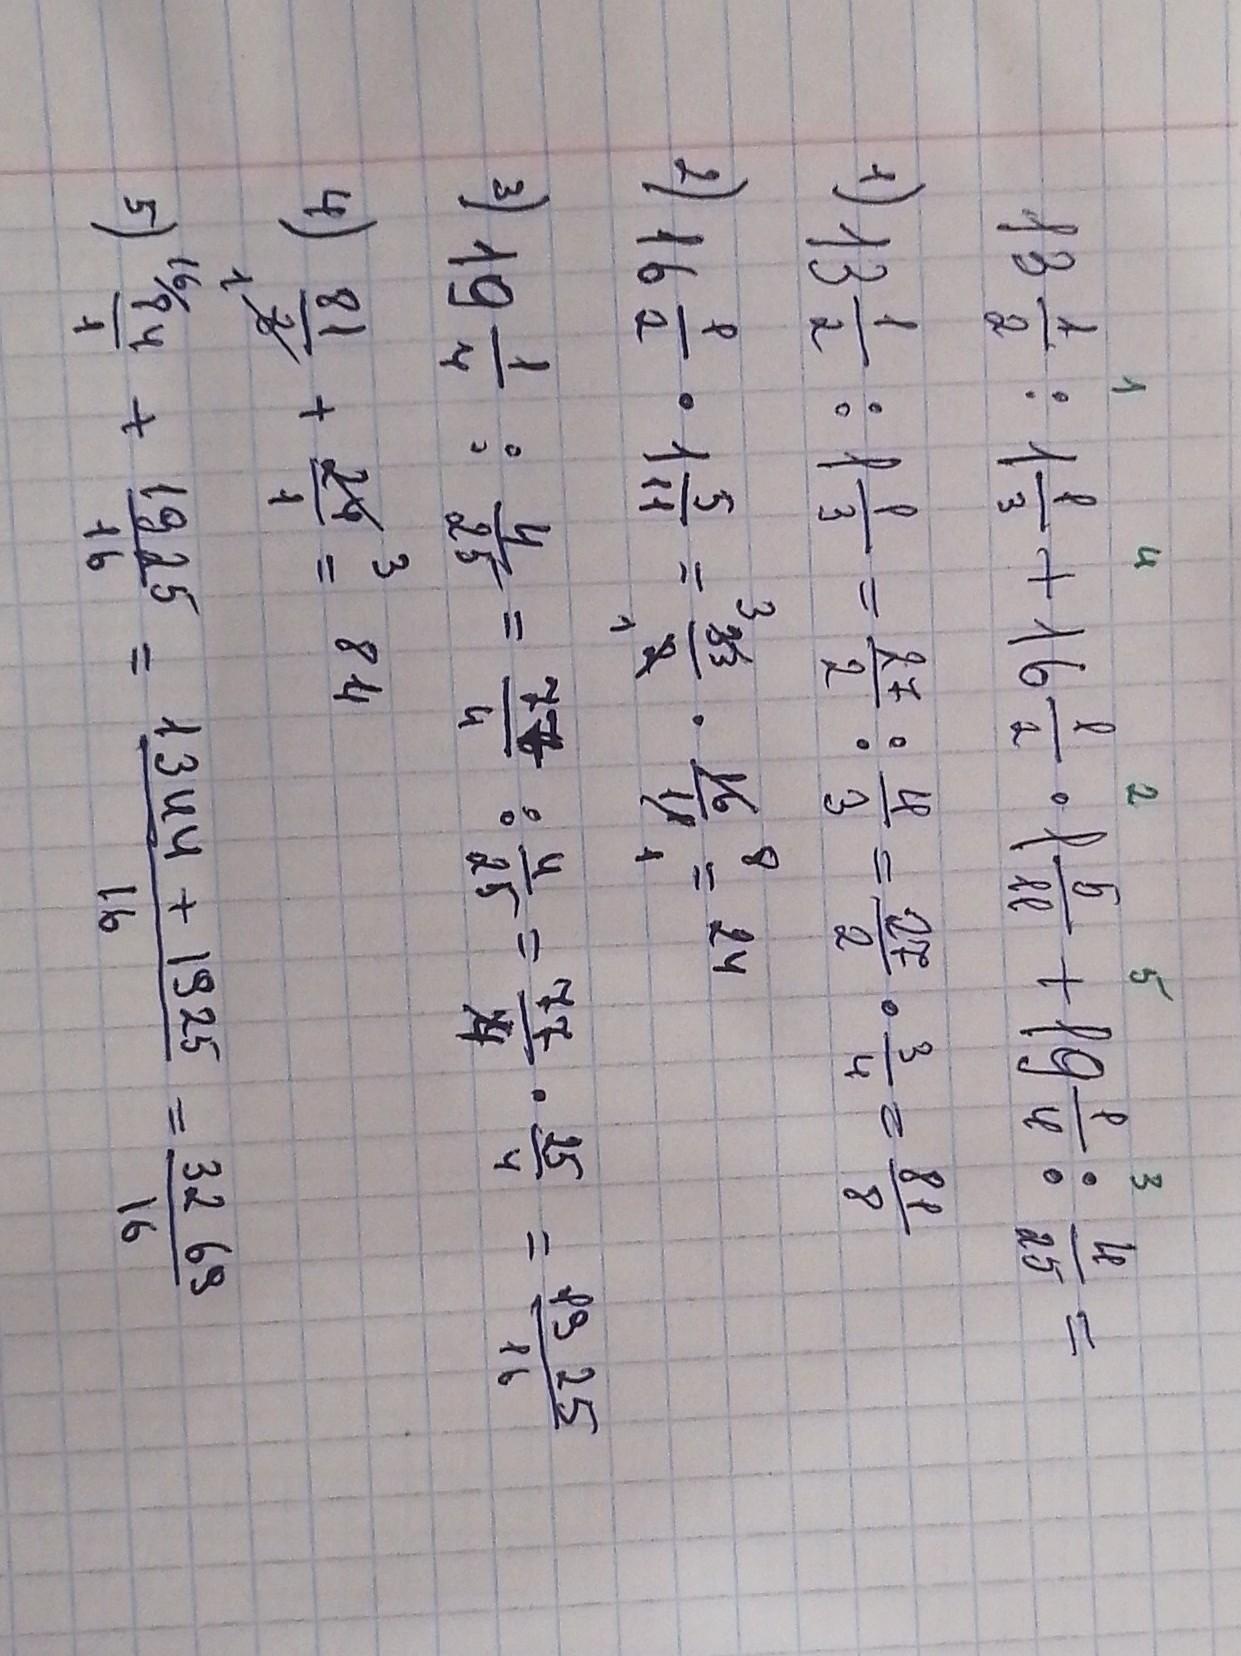 1 4 2 5 3
13 1/2 : 1 1/3 + 16 1/2 · 1 5/11 + 19 1/4 : 4/25 =
1) 13 1/2 : 1 1/3 = 27/2 : 4/3 = 27/2 · 3/4 = 81/8
2) 16 1/2 · 1 5/11 = 3 33/2 1 · 16/11 8 1 = 24
3) 19 1/4 : 4/25 = 77/4 : 4/25 = 77/4 · 25/4 = 1925/16
4) 81/8 1 + 24/1 3 = 84
5) 16/ 84/1 + 1925/16 = 1344 + 1925/16 = 3269/16